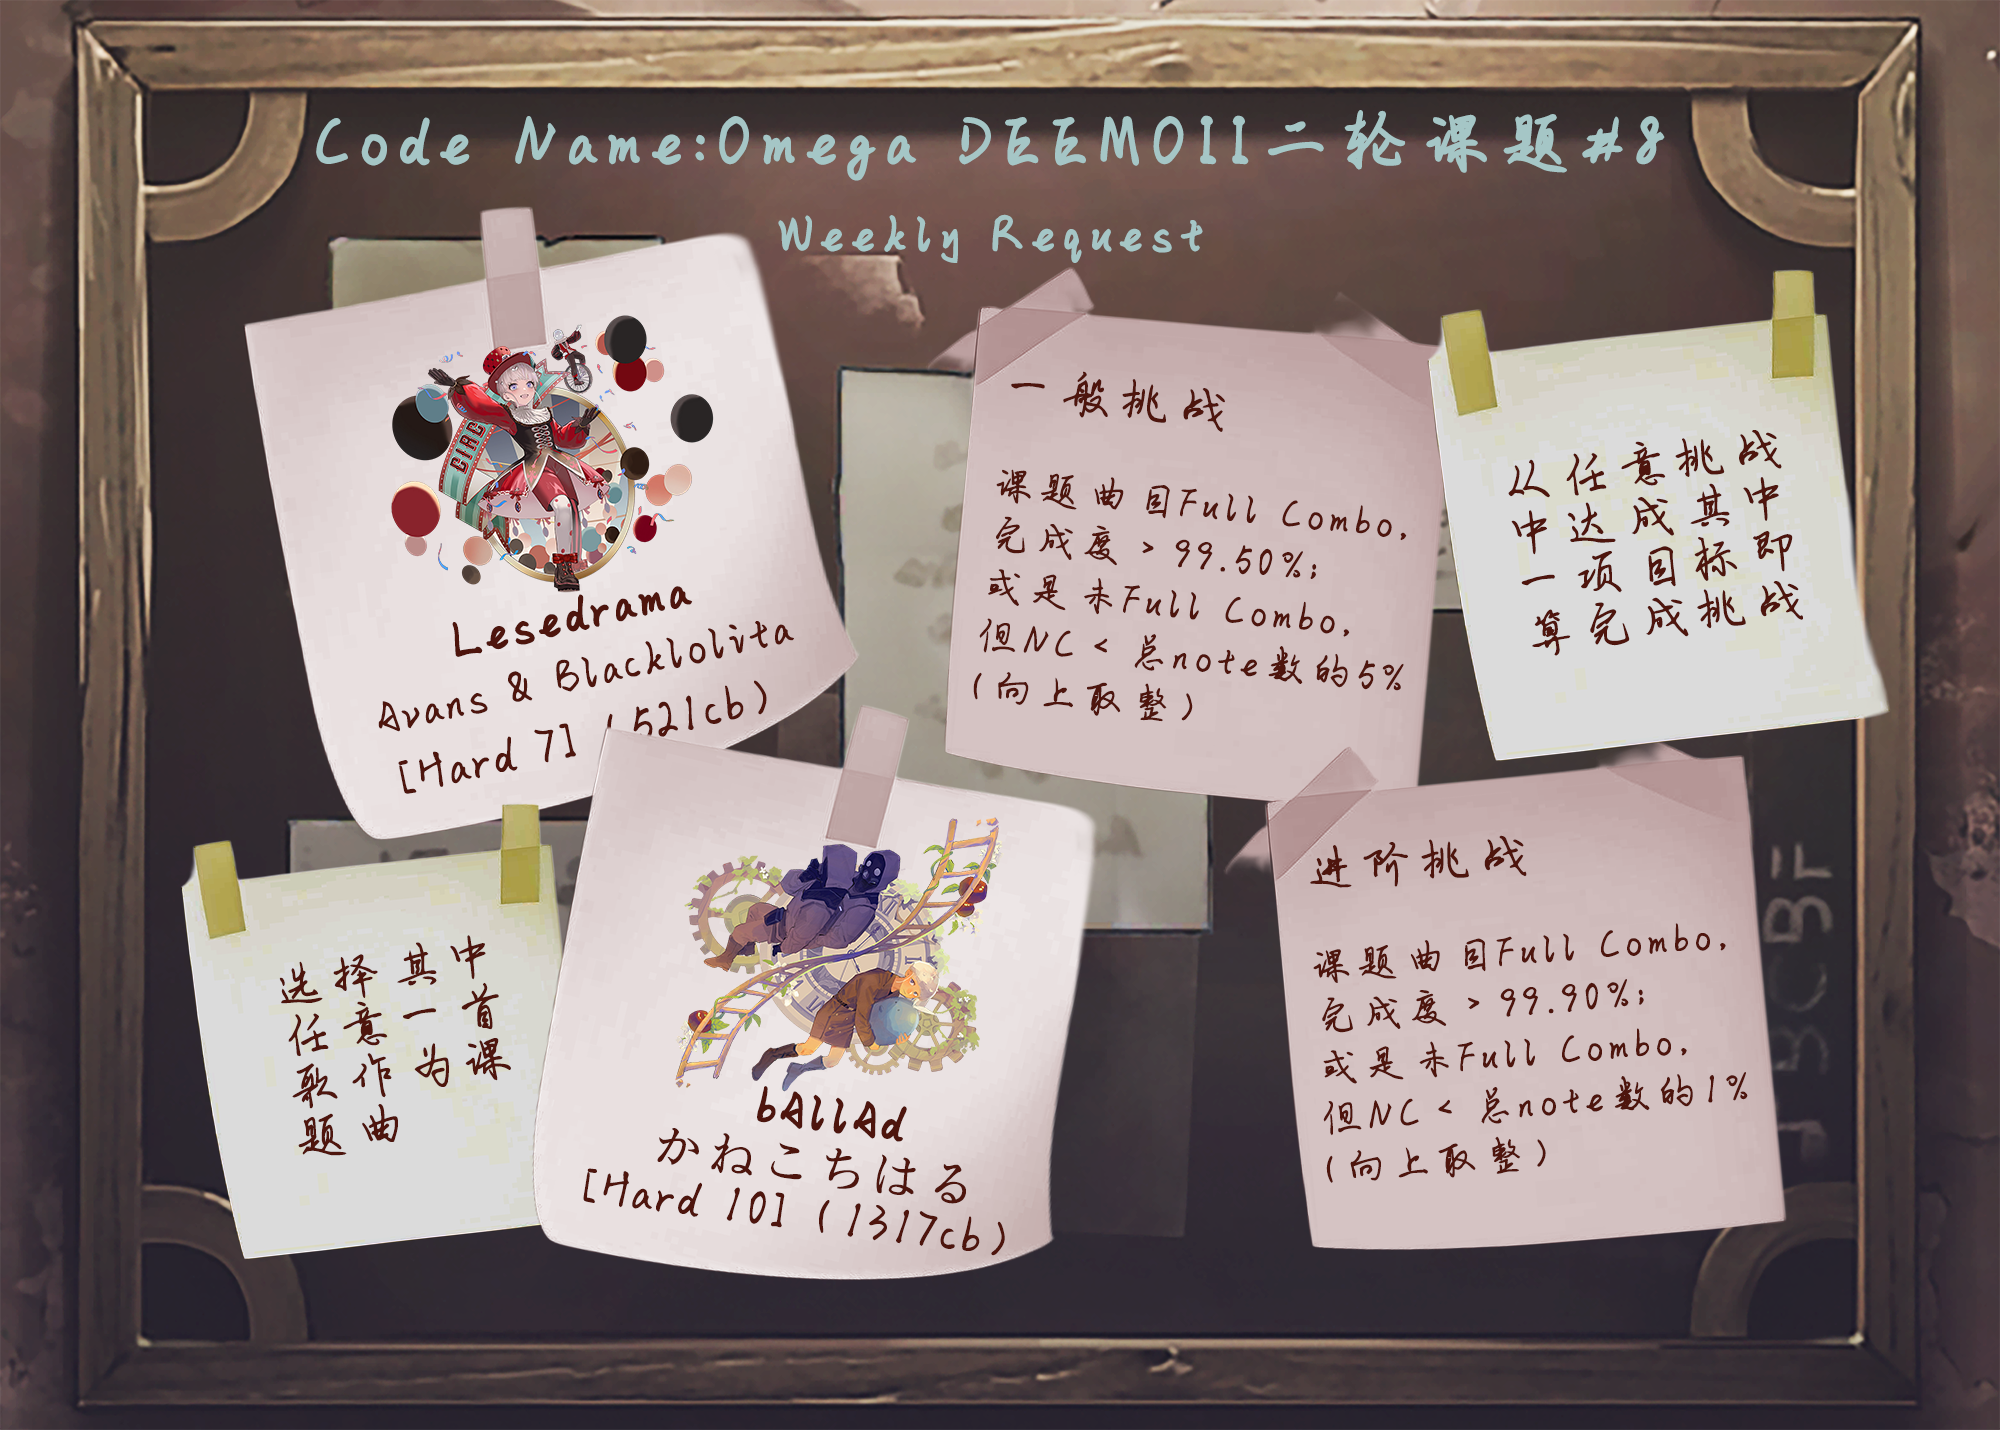 Code Name:Omega DEEMOII二轮课题#8
Weekly Request
CIRC
Lesedrama
Avans & Blacklolita
[Hard 7] (521cb)
一般挑战
课题曲目Full Combo,
完成度 > 99.50%;
或是未Full Combo,
但NC < 总note数的5%
(向上取整)
从任意挑战
中达成其中
一项目标即
算完成挑战
选择其中
任意一首
歌作为课
题曲
bAllAd
かねこちはる
[Hard 10] (1317cb)
进阶挑战
课题曲目Full Combo,
完成度 > 99.90%;
或是未Full Combo,
但NC < 总note数的1%
(向上取整)